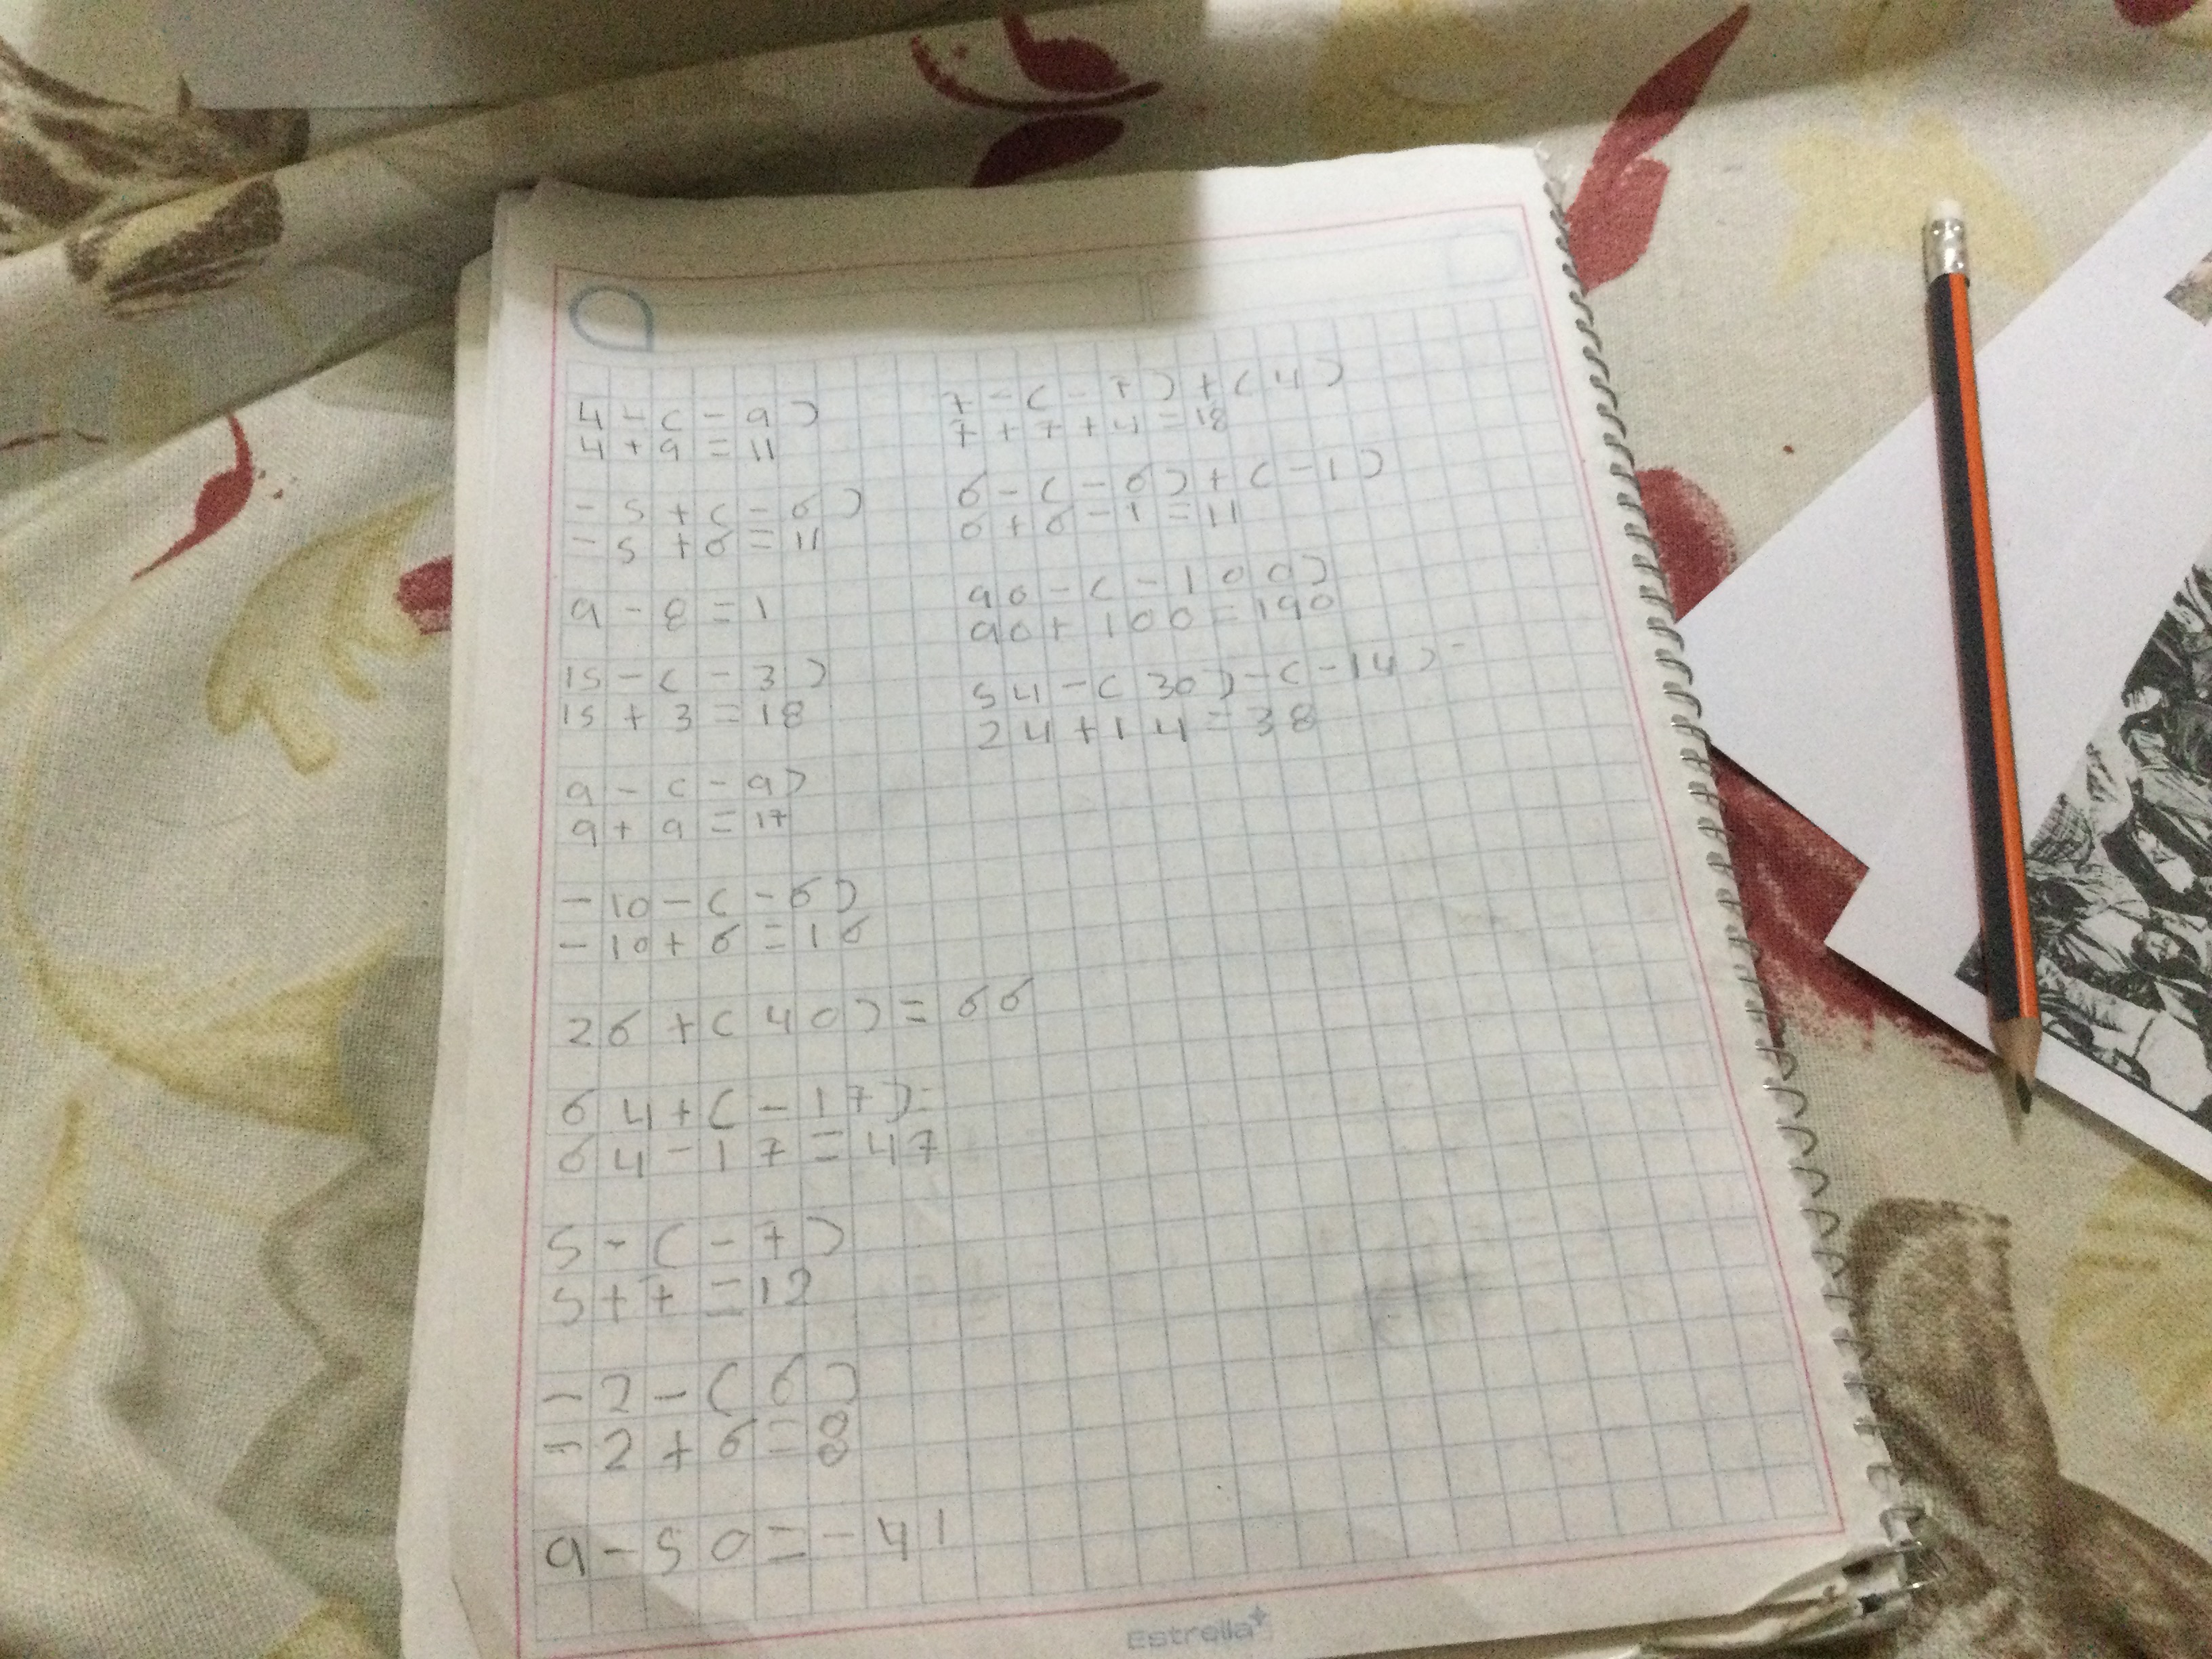 4-(-9)
4+9=11
-5+(-6)
-5+6=11
9-8=1
15-(-3)
15+3=18
9-(-9)
9+9=17
-10-(-6)
-10+6=16
26+(40)=66
64+(-17)=
64-17=47
5-(-7)
5+7=12
-2-(6)
-2+6=8
9-50=-41
7-(-7)+(4)
7+7+4=18
6-(-6)+(-1)
6+6-1=11
90-(-100)
90+100=190
54-(30)-(-14)=
24+14=38
Estrella